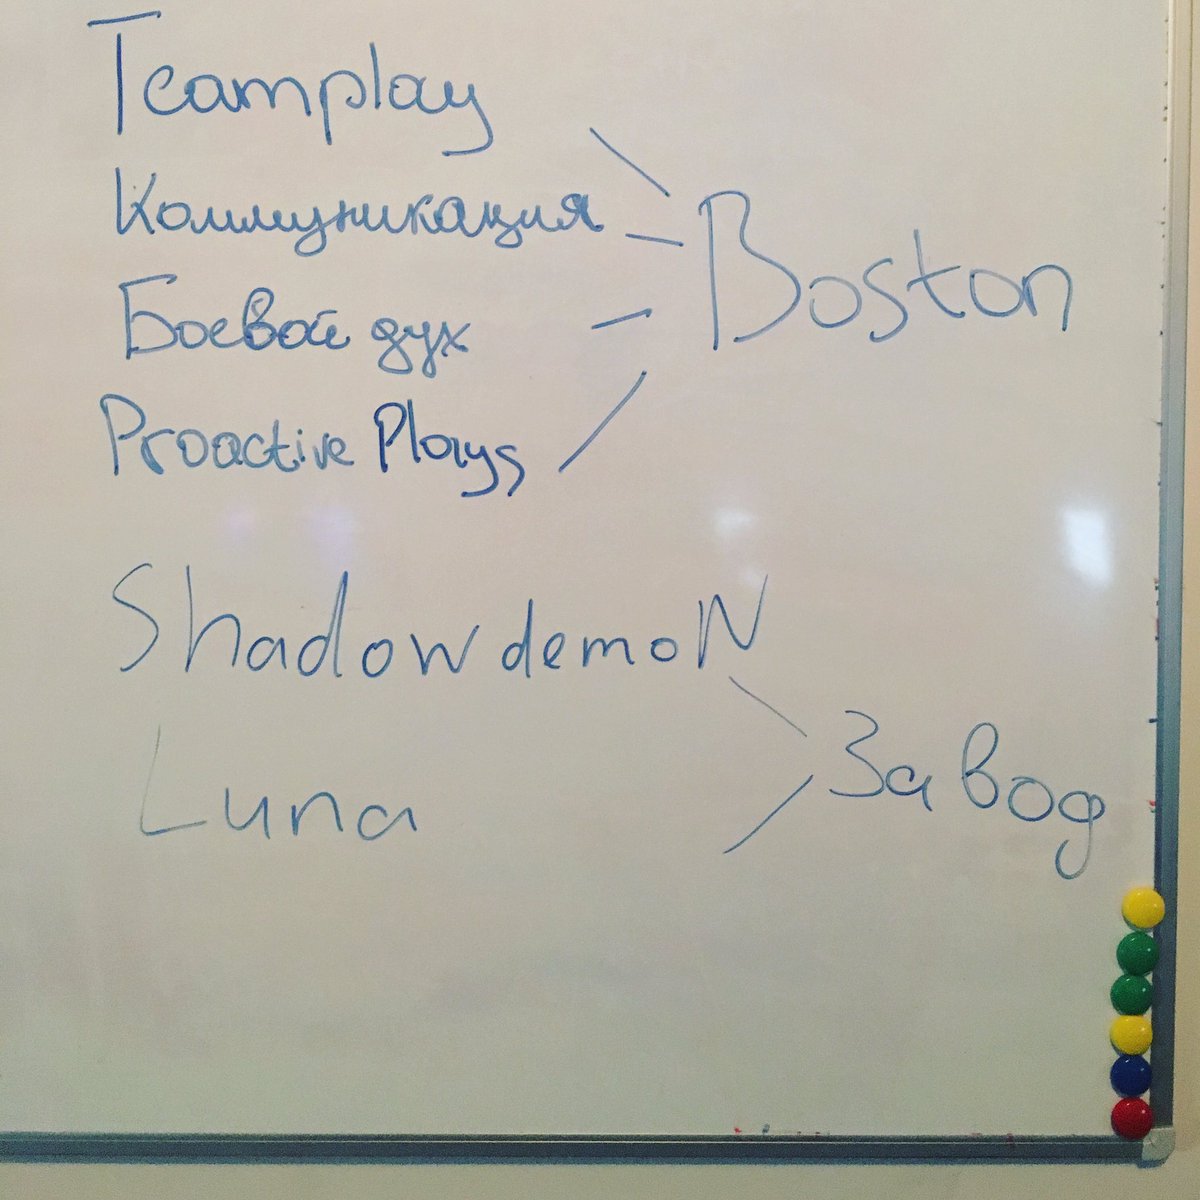 Teamplay
Коммуникация
Боевой дух
Proactive Plays
Boston
Shadow demoN
Luna
Завод